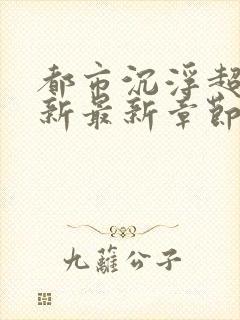 都市沉浮超
新最新章节
九蘺公子